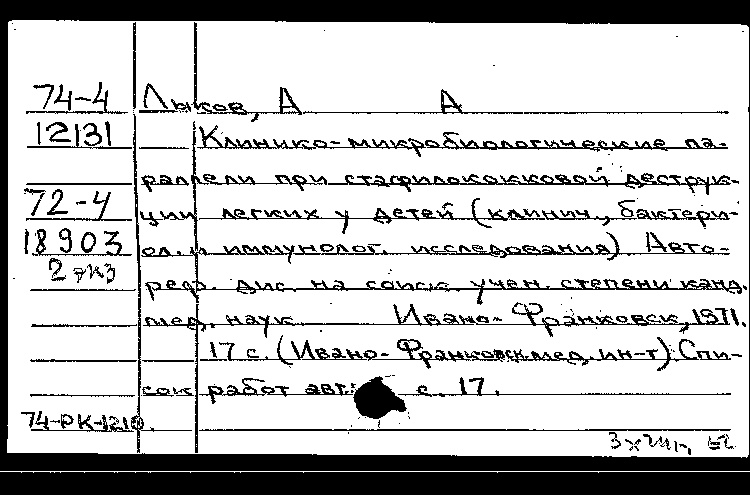 74-4 Лыков, А А
12131 Клинико-микробиологические па-
раллели при стафилококковой деструк-
72-4 ции легких у детей (клинич., бактери-
18903 ол. и иммунолог. исследования) Авто-
2 экз реф. дис. на соиск. учен. степени канд.
мед. наук Ивано-Франковск, 1971.
17 с. (Ивано-Франковск. мед. ин-т). Спи-
сок работ авт. с. 17.
74-РК-1210.